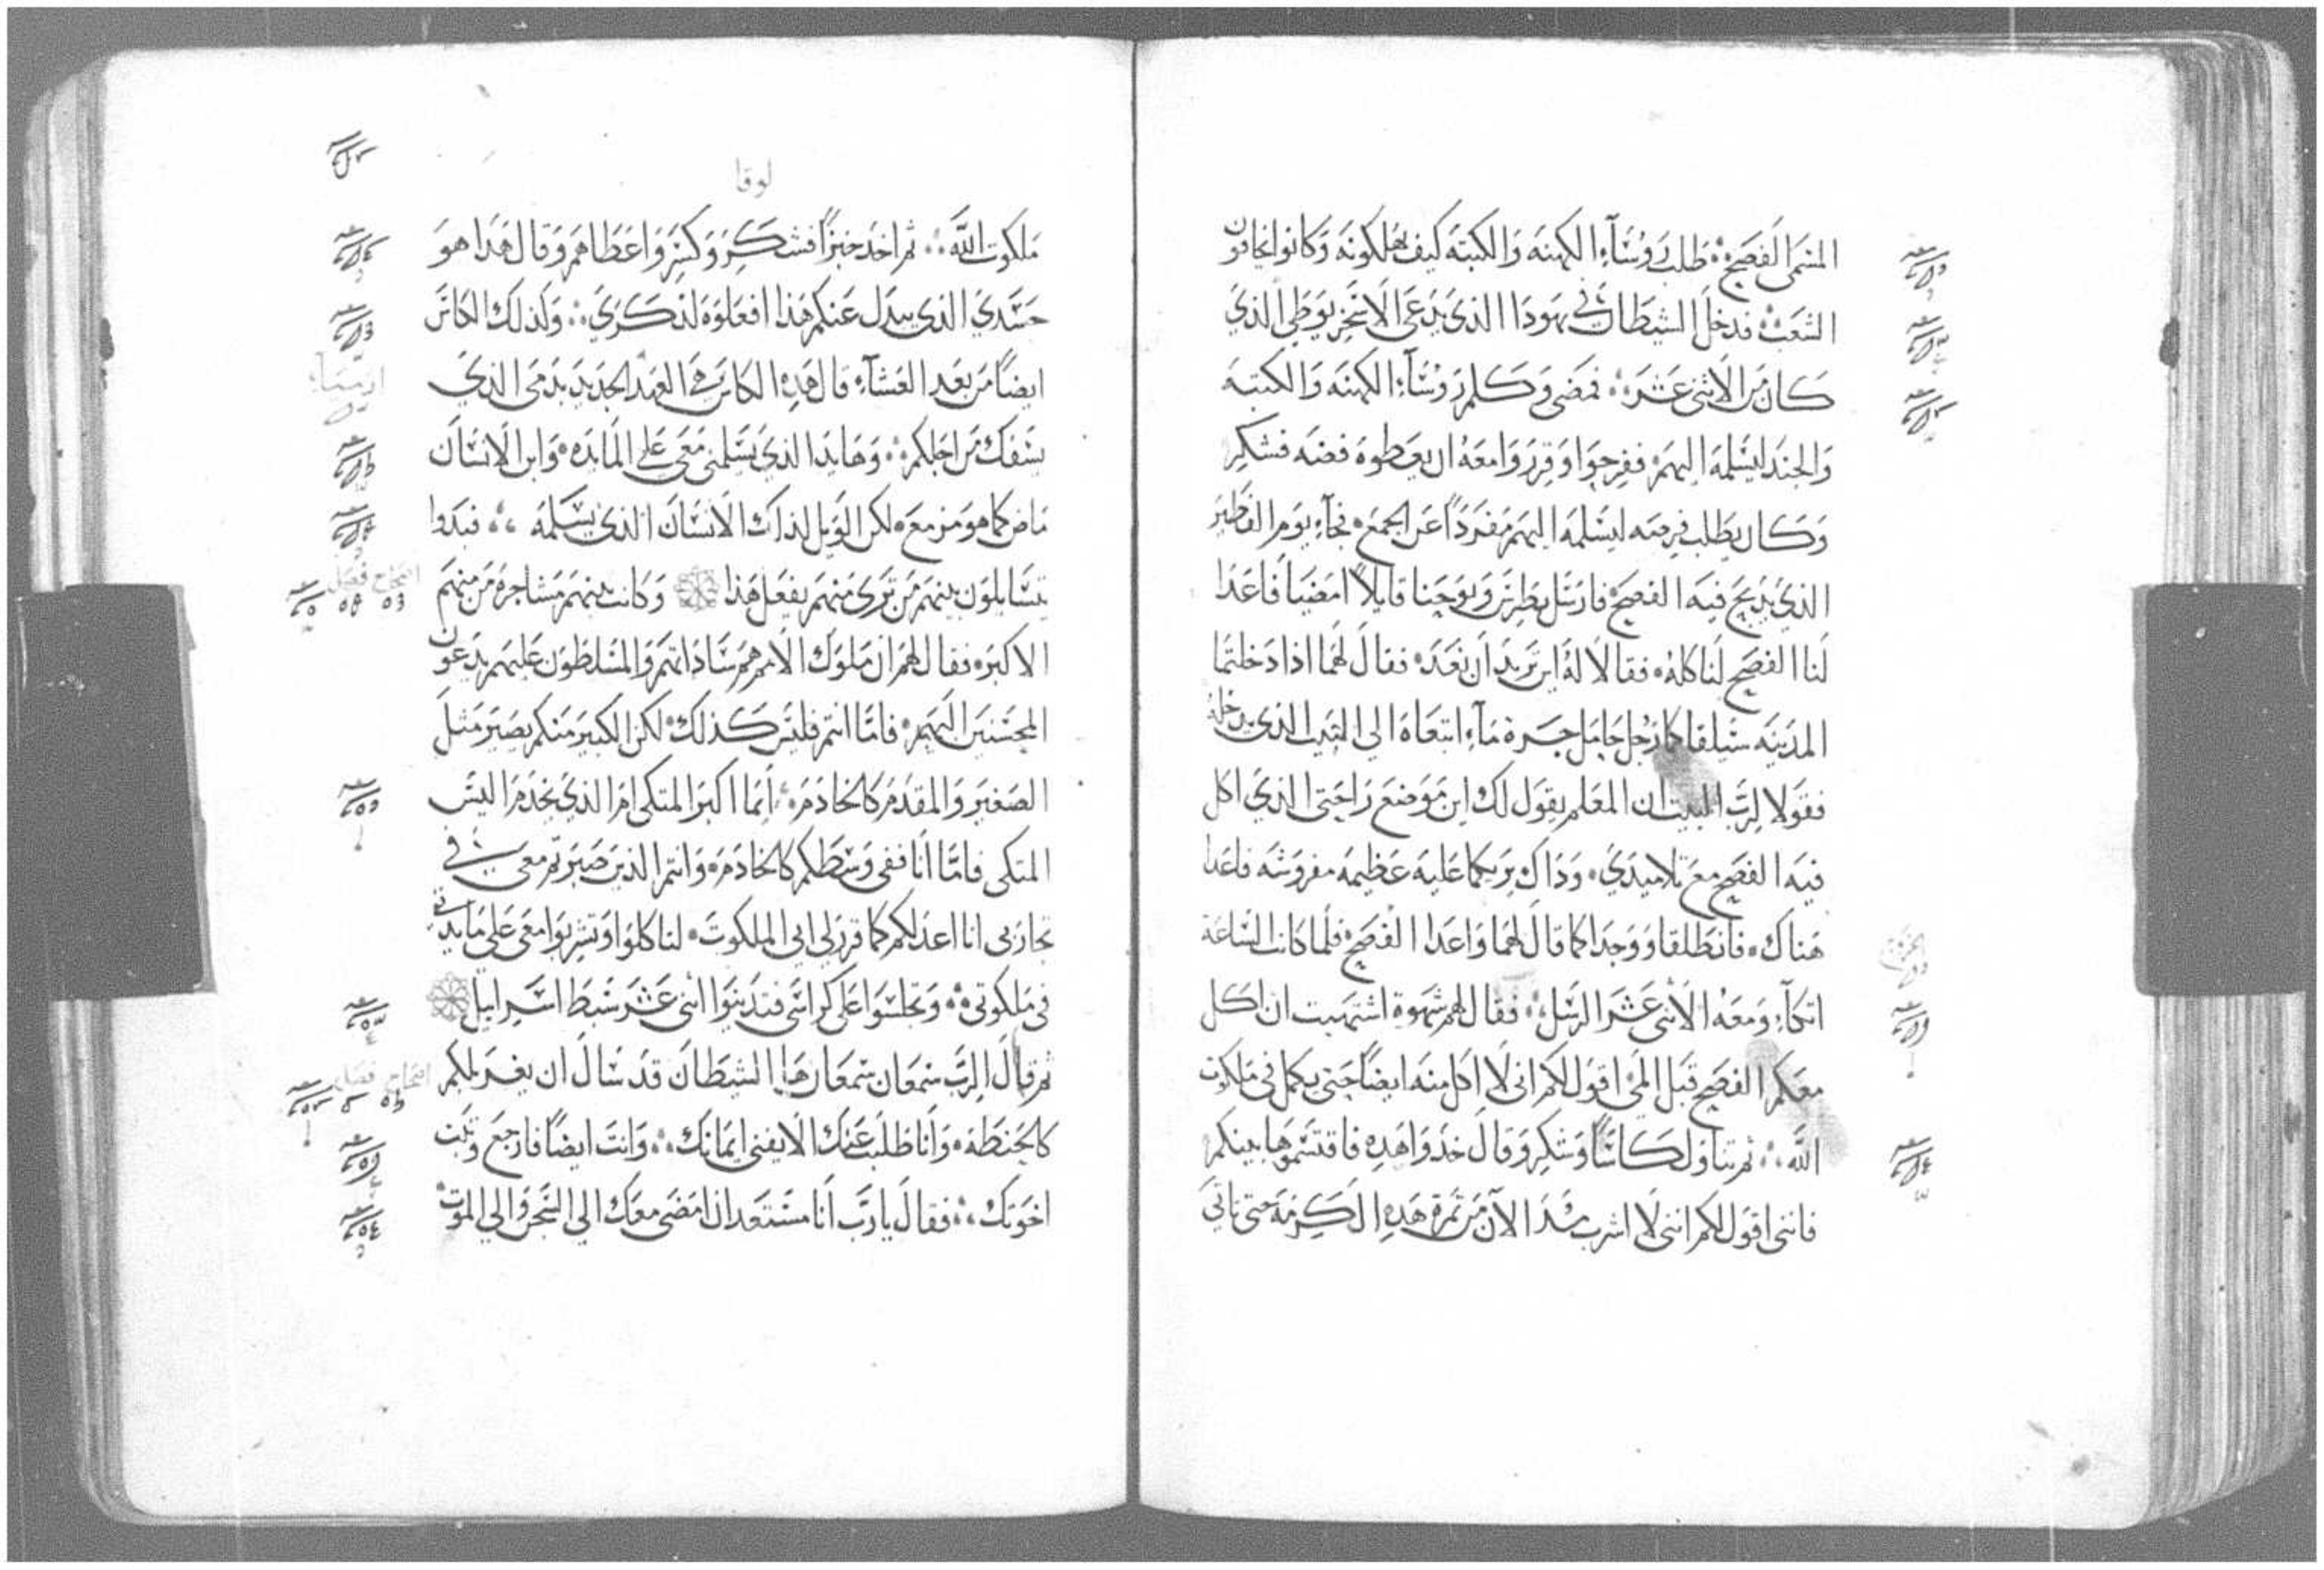 المسمى الفصح طلب روساء الكهنه والكتبة كيف يهلكونه وكانوا يخافون
الشعب فدخل الشيطان في يهودا الذي يدعى الاسخريوطي الذي
كان من الاثنى عشر فمضى وكلم روساء الكهنه والكتبه
والجند ليسلمه اليهم ففرحوا وقرروا معه ان يعطوه فضه فشكر
وكان يطلب فرصه ليسلمه اليهم مفرداً عن الجمع فجاء يوم الفطير
الذي يذبح فيه الفصح فارسل بطرس ويوحنا قايلاً امضيا فاعدا
لنا الفصح لناكله فقالا له اين تريد ان نعد فقال لهما اذا دخلتما
المدينه سيلقاكما رجل حامل جرة ماء اتبعاه الى البيت الذي يدخله
فقولا لرب البيت ان المعلم يقول لك اين موضع راحتي الذي اكل
فيه الفصح مع تلاميذي وذاك يريكما عليه عظيمه مفروشه فاعدا
هناك فانطلقا ووجدا كما قال لهما واعدا الفصح فلما كانت الساعة
اتكاء ومعه الاثنى عشر الرسل فقال لهم شهوة اشتهيت ان اكل
معكم الفصح قبل المي اقول لكم انى لا اكل منه ايضاً حتى يكمل في ملكوت
الله ثم تناول كاساً وشكر وقال خذوا هذه فاقتسموها بينكم
فانني اقول لكم انني لا اشرب منذ الآن من ثمرة هذه الكرمة حتى تاتي
لوقا
ملكوت الله ثم اخذ خبزاً فشكر وكسر واعطاهم وقال هذا هو
جسدي الذي يبذل عنكم هذا افعلوه لذكري وكذلك الكاس
ايضاً من بعد العشاء قال هذه الكاس هي العهد الجديد بدمى الذي
يسفك من اجلكم وها يد الذي يسلمنى معي على المايده وابن الانسان
ماض كما هو مزمع لكن الويل لذاك الانسان الذي يسلمه فبدوا
يتسايلون بينهم من ترى منهم يفعل هذا وكانت بينهم مشاجرة من منهم
الاكبر فقال لهم ان ملوك الامم هم ساداتهم والمسلطون عليهم يدعون
المحسنين اليهم فاما انتم فليس كذلك لكن الكبير منكم يصير مثل
الصغير والمقدم كالخادم ايما اكبر المتكى ام الذي يخدم اليس
المتكى فاما انا ففى وسطكم كالخادم وانتم الذين صبرتم معي في
تجاربى انا اعد لكم كما قرر لى ابى الملكوت لتاكلوا وتشربوا معى على مايدتى
في ملكوتي وتجلسوا على كراسى فتدينوا اثنى عشر سبط اسراييل
ثم قال الرب سمعان سمعان ها الشيطان قد سال ان يغربلكم
كالحنطة وانا طلبت عنك الا يفنى ايمانك وانت ايضاً فارجع وثبت
اخوتك فقال يا رب انا مستعد ان امضى معك الى السجن والى الموت